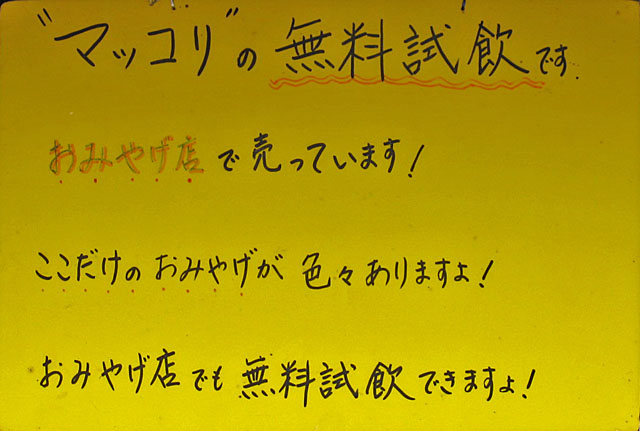 "マッコリ"の無料試飲です.
おみやげ店で売っています!
ここだけのおみやげが色々ありますよ!
おみやげ店でも無料試飲できますょ!